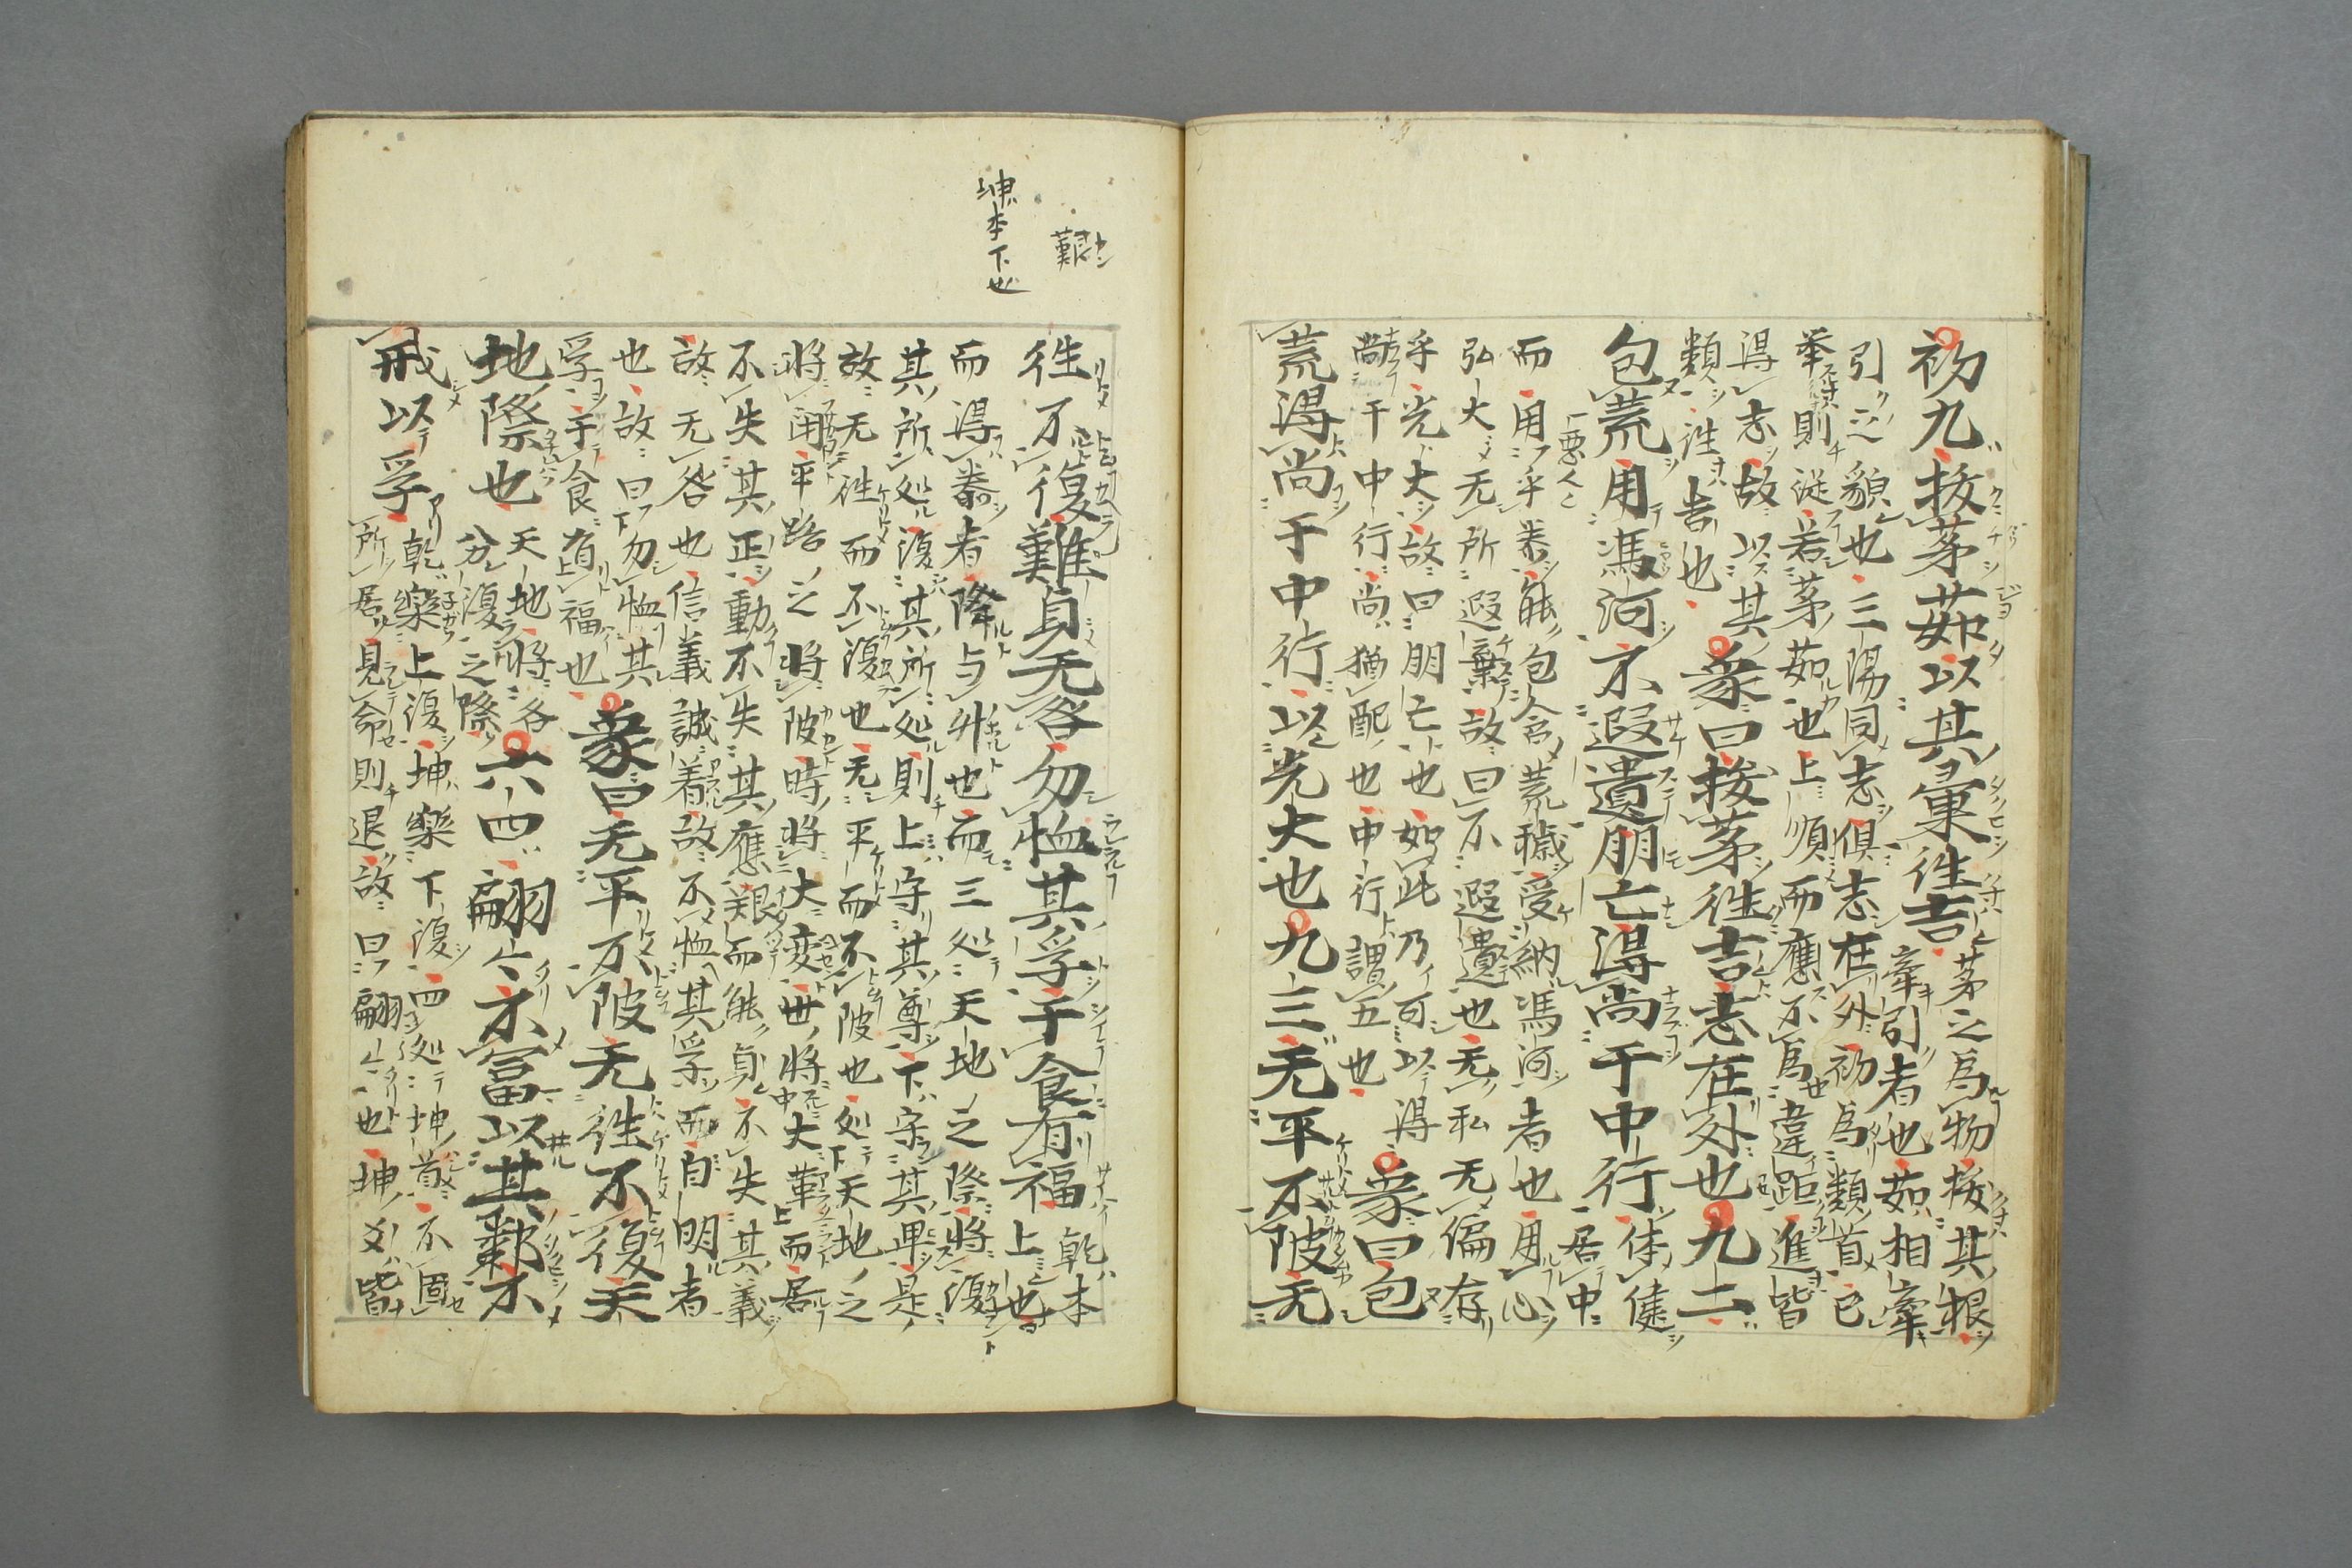 初九拔茅茹以其彙徃吉茅之爲物拔其根
牽引者也茹相牽
引之貌也三陽同志俱志在外初爲類首已
挙則從若茅茹也上順而應不爲違距進皆
得志故以其
類徃吉也
象曰拔茅徃吉志在外也九二
包荒用馮河不遐遺朋亡得尚于中行体健
居中
而用乎泰能包含荒穢受納馮河者也用心
弘大无所遐棄故曰不遐遺也无私无偏存
乎光大故曰朋亡也如此乃可以得
尚于中行尚猶配也中行謂五也
象曰包
荒得尚于中行以光大也九三无平不陂无
艱
坤本下也
徃不復難貞无咎勿恤其孚于食有福乾本
上也
而得泰者降与升也而三処天地之際將復
其所処復其所処則上守其尊下守其卑是
故无徃而不復也无平而不陂也処天地之
將閉平路之將陂時將大変世將大革而居
不失其正動不失其應艱而能貞不失其義
故无咎也信義誠著故不恤其孚而自明者
也故曰勿恤其
孚于食有福也
象曰无平不陂无徃不復天
地際也天地將各
分復之際
六四翩々不冨以其鄰不
戒以孚乾樂上復坤樂下復四処坤首不固
所居見命則退故曰翩々也坤爻皆